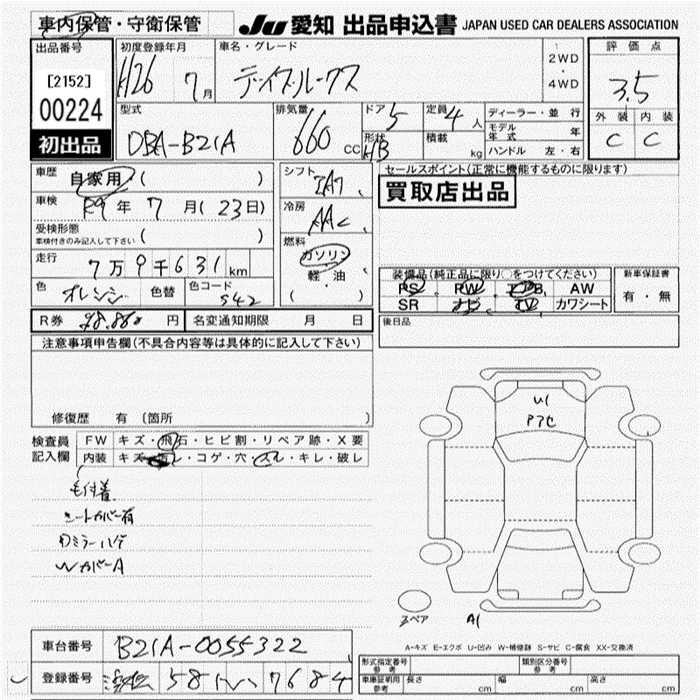 車内保管・守衛保管
JU 愛知 出品申込書 JAPAN USED CAR DEALERS ASSOCIATION
出品番号
[2152]
00224
初出品
初度登録年月
H26 7月
車名・グレード
デイズルークス
2WD
・
4WD
評価点
3.5
外装 内装
C C
型式
DBA-B21A
排気量
660 cc
ドア 5
形状 HB
定員 4人
積載 kg
ディーラー・並行
モデル年式 年
ハンドル 左・右
車歴 自家用 ( )
車検 R9年 7月(23日)
受検形態
車検付きのみ記入して下さい ( )
走行 7万9千631km
色 オレンジ 色替 色コード S42
シフト IA7
冷房 AAC
燃料
ガソリン
軽・油
( )
セールスポイント(正常に機能するものに限ります)
買取店出品
装備品(純正品に限り○をつけてください)
PS PW エアB AW
SR ナビ TV カワシート
新車保証書
有・無
R券 ¥8,860円 名変通知期限 月 日
後日品
注意事項申告欄(不具合内容等は具体的に記入して下さい)
修復歴 有 (箇所
検査員記入欄
FW キズ・飛石・ヒビ割・リペア跡・X要
内装 キズ・汚レ・コゲ・穴・スレ・キレ・破レ
毛付着
シートカバー有
Dミラーハゲ
WカバーA
U1
P7C
スペア
A1
A-キズ E-エクボ U-凹み W-補修跡 S-サビ C-腐食 XX-交換済
車台番号 B21A-0055322
登録番号 浜松 581 い 7684
型式指定番号
参考
類別区分番号
参考
車庫証明用
参考
長さ cm 幅 cm 高さ cm